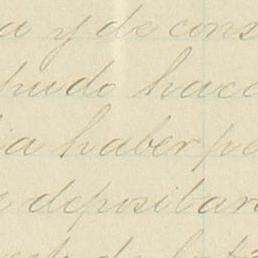 a y de cons
pudo hace
ia haber pe
depositar